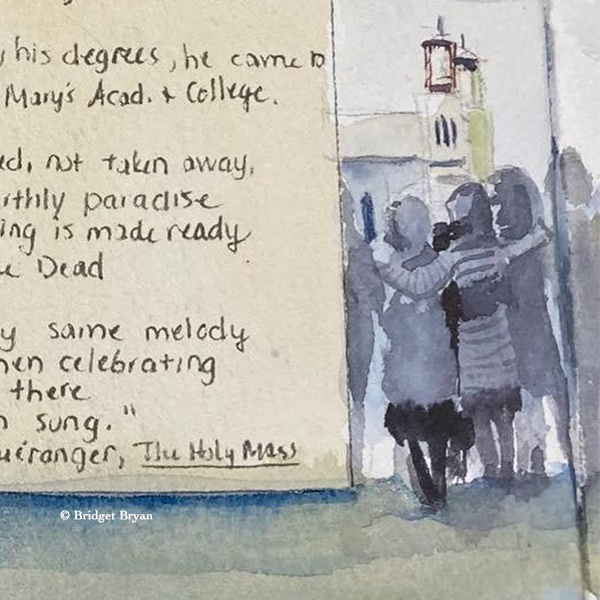 his degrees, he came to
Mary's Acad. + College.
ed, not taken away,
rthly paradise
ing is made ready
Dead
y same melody
hen celebrating
there
sung."
ueranger, The Holy Mass
© Bridget Bryan